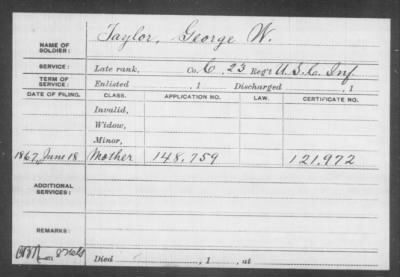 NAME OF SOLDIER: Taylor, George W.
SERVICE: Late rank, Co. C, 23 Reg't U.S.C. Inf
TERM OF SERVICE: Enlisted , 1 Discharged , 1
DATE OF FILING. CLASS. APPLICATION NO. LAW. CERTIFICATE NO.
Invalid,
Widow,
Minor,
1867, June 18 Mother 148,759 121,972
ADDITIONAL SERVICES:
REMARKS:
Died , 1 , at